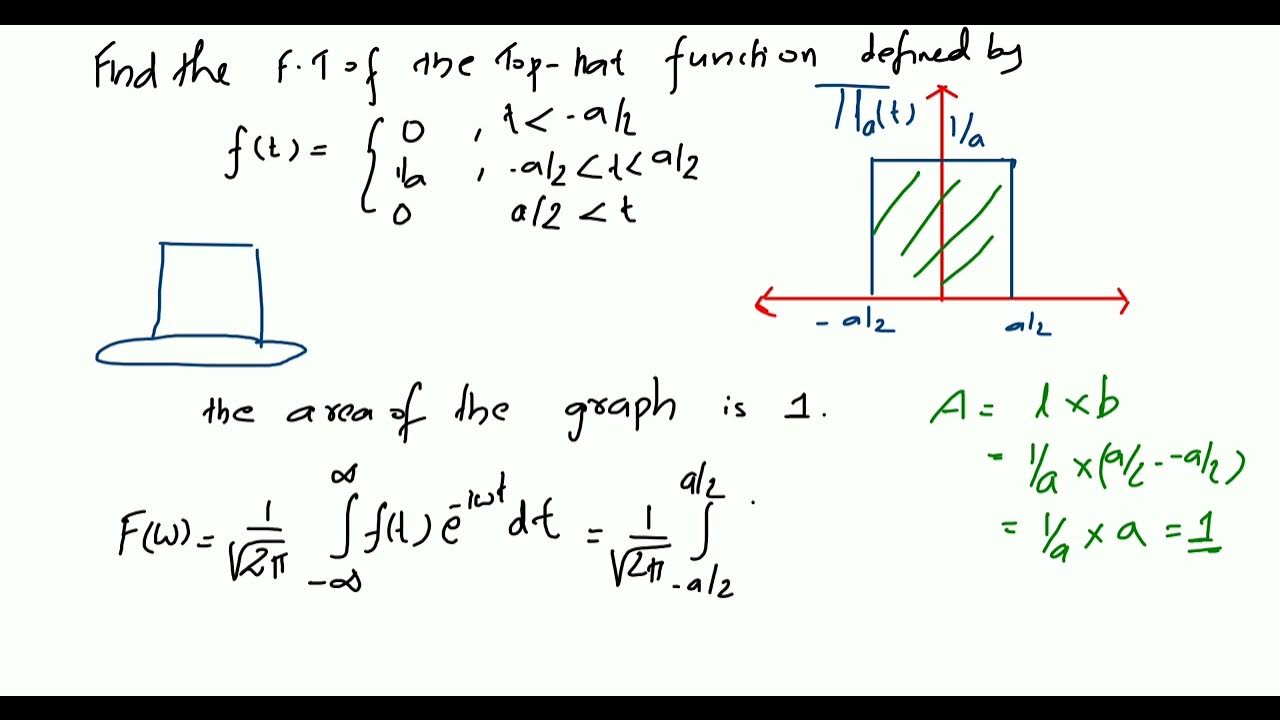 Find the F.T of the Top-hat function defined by
f(t) = { 0 , t < -a/2
1/a , -a/2 < t < a/2
0 a/2 < t
Πa(t)
1/a
-a/2 a/2
the area of the graph is 1.
A = l × b
= 1/a × (a/2 - -a/2)
= 1/a × a = 1
F(ω) = 1/√2π ∫_{-∞}^{∞} f(t) e^{-iωt} dt = 1/√2π ∫_{-a/2}^{a/2}